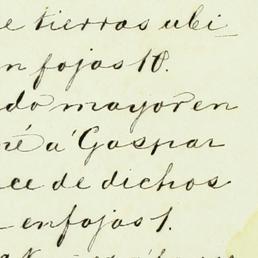 e tierras ubi_
n fojas 18.
do mayor en
né a' Gaspar
ce de dichos
- en fojas 1.